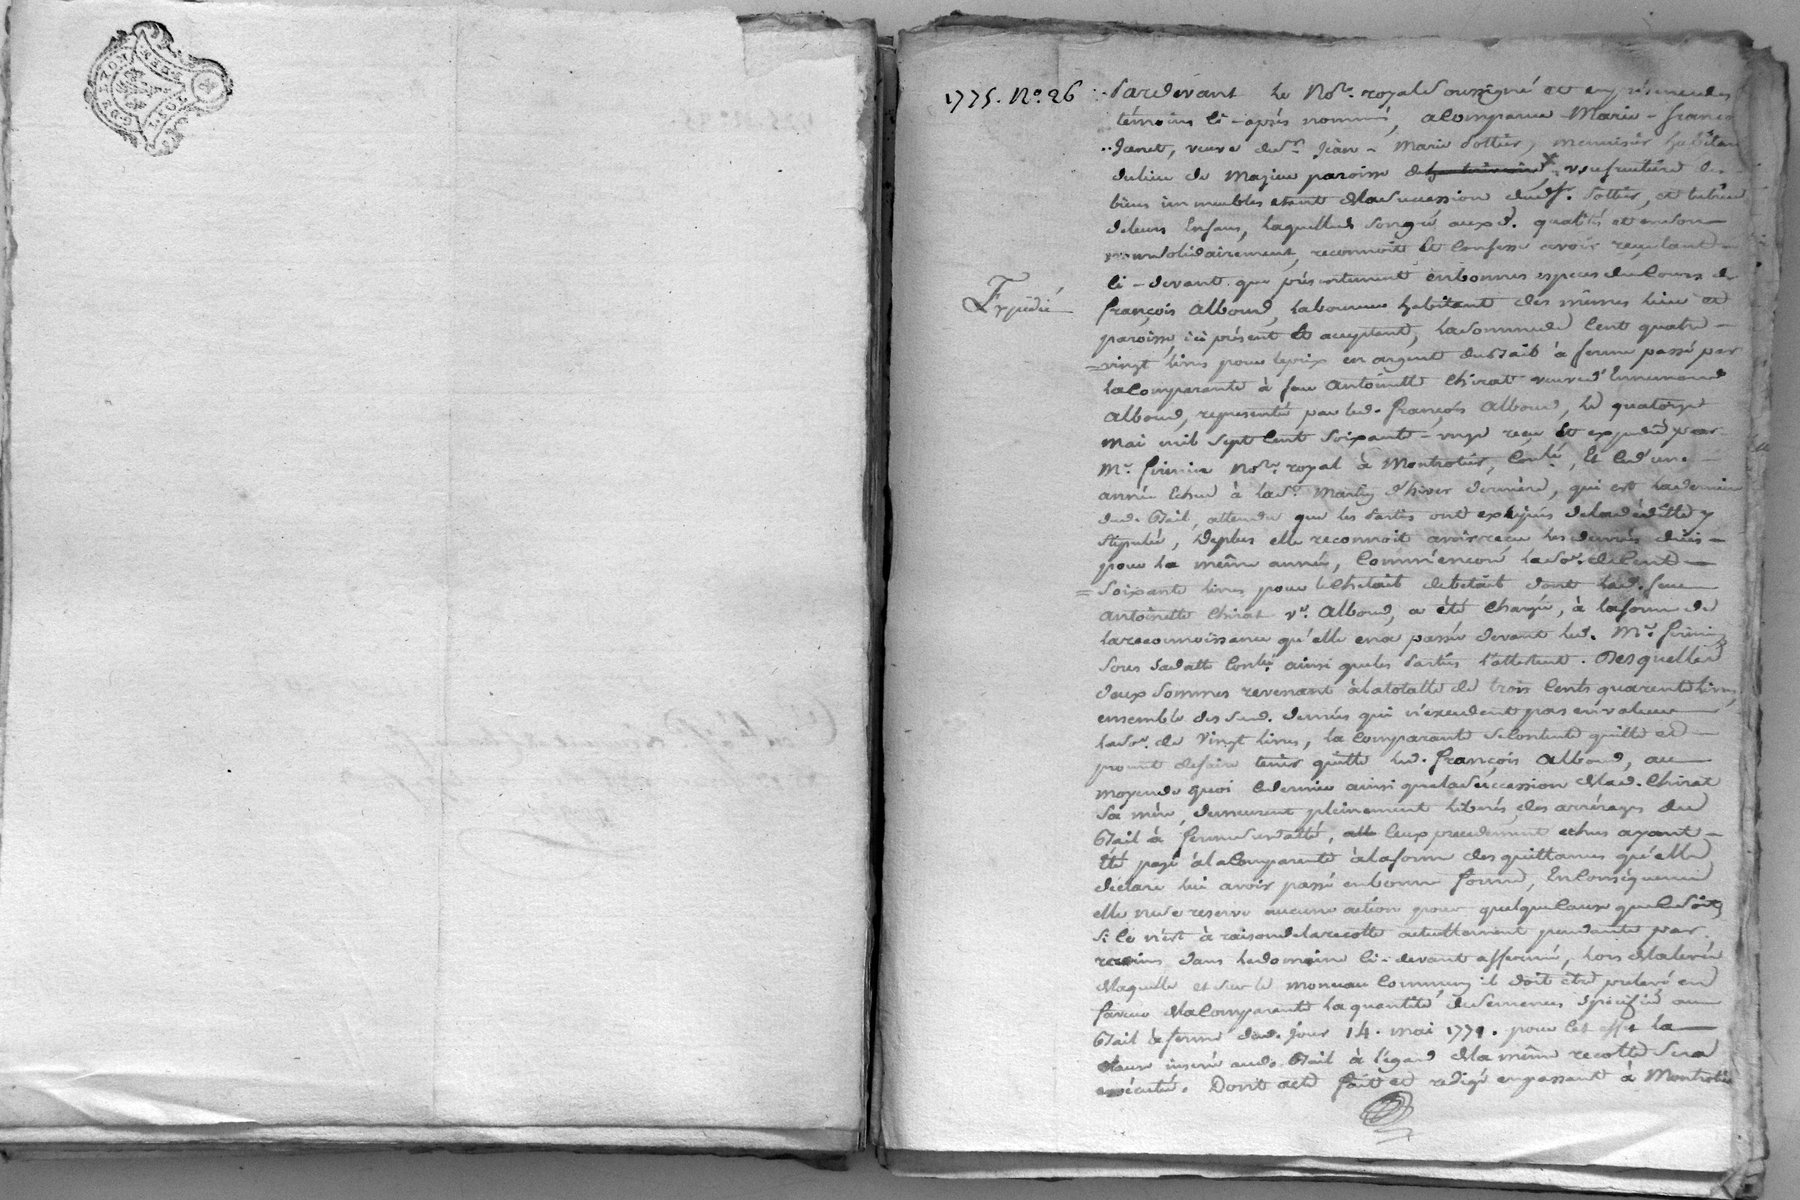 1775. No. 26
Pardevant le Nore. royal soussigné et en présence des
témoins ci-après nommés, a comparue Marie-françoi
Jeanet, veuve du sr. Jean-Marie Pottier, menuisier habitan
du lieu de Mazieu paroisse de usufruitière des
biens immeubles etant de la succession dud. sr. Pottier, et tutrice
de leurs Enfans, laquelle de son gré auxd. qualités et en son
nom solidairement, reconnoit et confesse avoir reçu tant
ci-devant que présentement en bonnes espèces du Cours de
Expédié
françois Alboud, laboureur habitant des mêmes lieu et
paroisse, ici présent et acceptant, la somme de Cent quatre-
=vingt livres pour le prix en argent du Bail à ferme passé par
la Comparante à feue Antoinette Chirat veuve d'Ennemond
Alboud, représentée par led. françois Alboud, le quatorze
mai mil sept cent soixante-onze reçu et expédié par
Me. Nore. royal à Montrotier, Conlé, et ce d'une
année échue à la St. Martin d'hiver dernière, qui est la dernière
dud. Bail, attendu que les Parties ont expliqués de la déditte y
stipulée, Deplus elle reconnoit avoir reçu les denrées dües
pour la même année, Comm'encore la Soe. de Cent
=Soixante livres pour le Cheptait de betail dont lad. feue
Antoinette Chirat ve. Alboud, a été chargée, à la forme de
la reconnoissance qu'elle en a passée devant led. Me.
sous sa datte Conlée ainsi que les Parties l'attestent. Desquelles
deux sommes revenant à la totalle de trois Cents quarente livres,
ensemble des sud. denrées qui n'excedent pas en valeur
la Soe. de Vingt livres, la Comparante se Contente quitte et
promet de faire tenir quitte led. françois Alboud, au
moyen de quoi ce dernier ainsi que la succession de lad. Chirat
sa mère, demeurent pleinement libérés des arrérages du
Bail à ferme susdatté, ceux precedemment echus ayant
été payé à la Comparante à la forme des quittances qu'elle
déclare lui avoir passé en bonne forme, En Conséquence
elle ne se reserve aucune action pour quelque Cause que ce soit,
si ce n'est à raison de la recolte actuellement pendante par
racines dans le domaine ci-devant affermé, lors de la levée
de laquelle et sur le monceau commun il doit être prelevé en
faveur de la Comparante la quantité de semences spécifiée au
Bail à ferme dud. jour 14. mai 1771. pour cet effet la
Clause inserée aud. Bail à l'égard de la même recolte sera
exécutée. Dont acte fait et redigé en passant à Montrotier